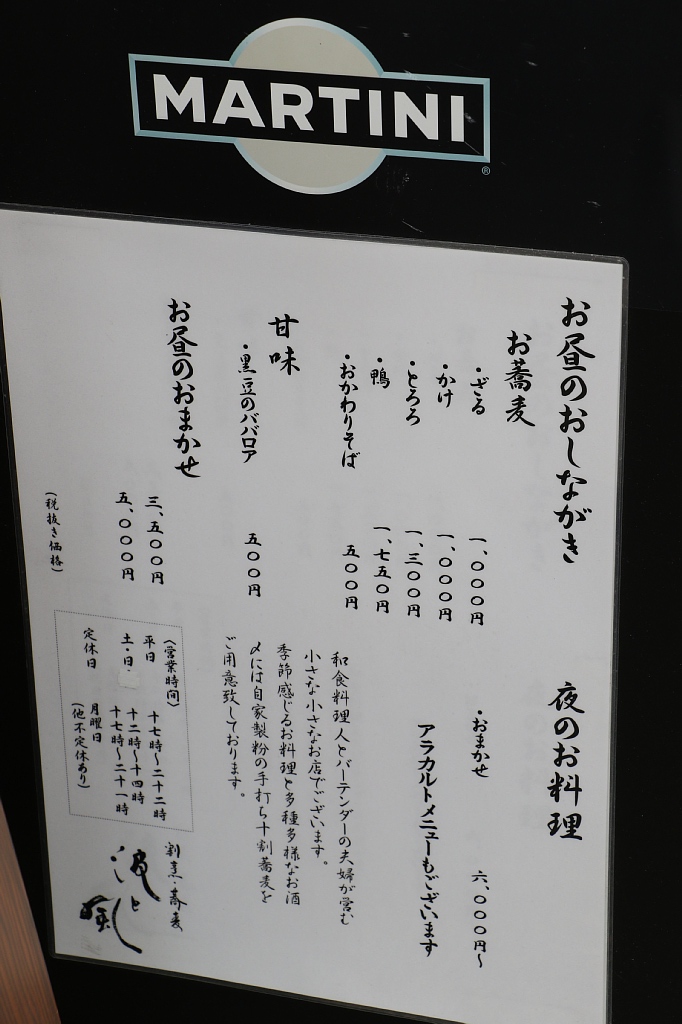 MARTINI
®
お昼のおしながき
お蕎麦
・ざる 一、〇〇〇円
・かけ 一、〇〇〇円
・とろろ 一、三〇〇円
・鴨 一、七五〇円
・おかわりそば 五〇〇円
甘味
・黒豆のババロア 五〇〇円
お昼のおまかせ
三、五〇〇円
五、〇〇〇円
(税抜き価格)
夜のお料理
・おまかせ 六、〇〇〇円~
アラカルトメニューもございます
和食料理人とバーテンダーの夫婦が営む
小さな小さなお店でございます。
季節感じるお料理と多種多様なお酒
〆には自家製粉の手打ち十割蕎麦を
ご用意致しております。
(営業時間)
平日 十七時~二十二時
土・日・ 十二時~十四時
十七時~二十一時
定休日 月曜日
(他不定休あり)
割烹・蕎麦
波と風